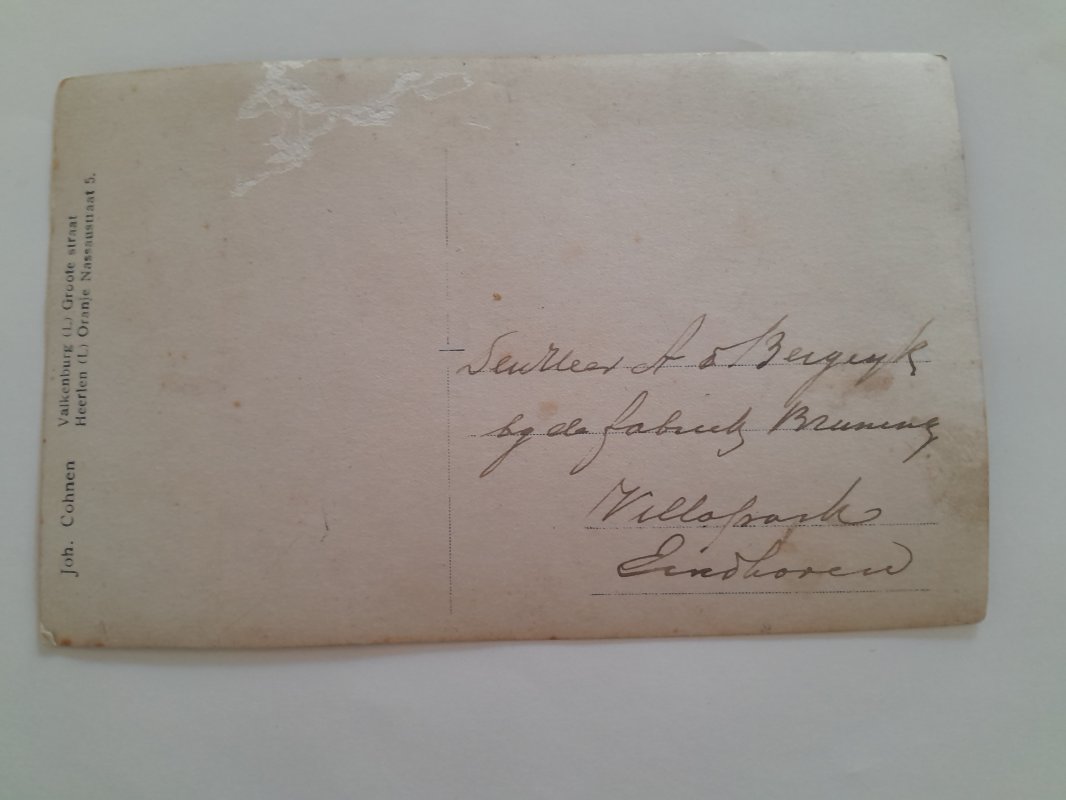 Joh. Cohnen
Valkenburg (L.) Groote straat
Heerlen (L.) Oranje Nassaustraat 5.
Den Heer A v Bergeyk
by de fabriek Bruning
Villapark
Eindhoven